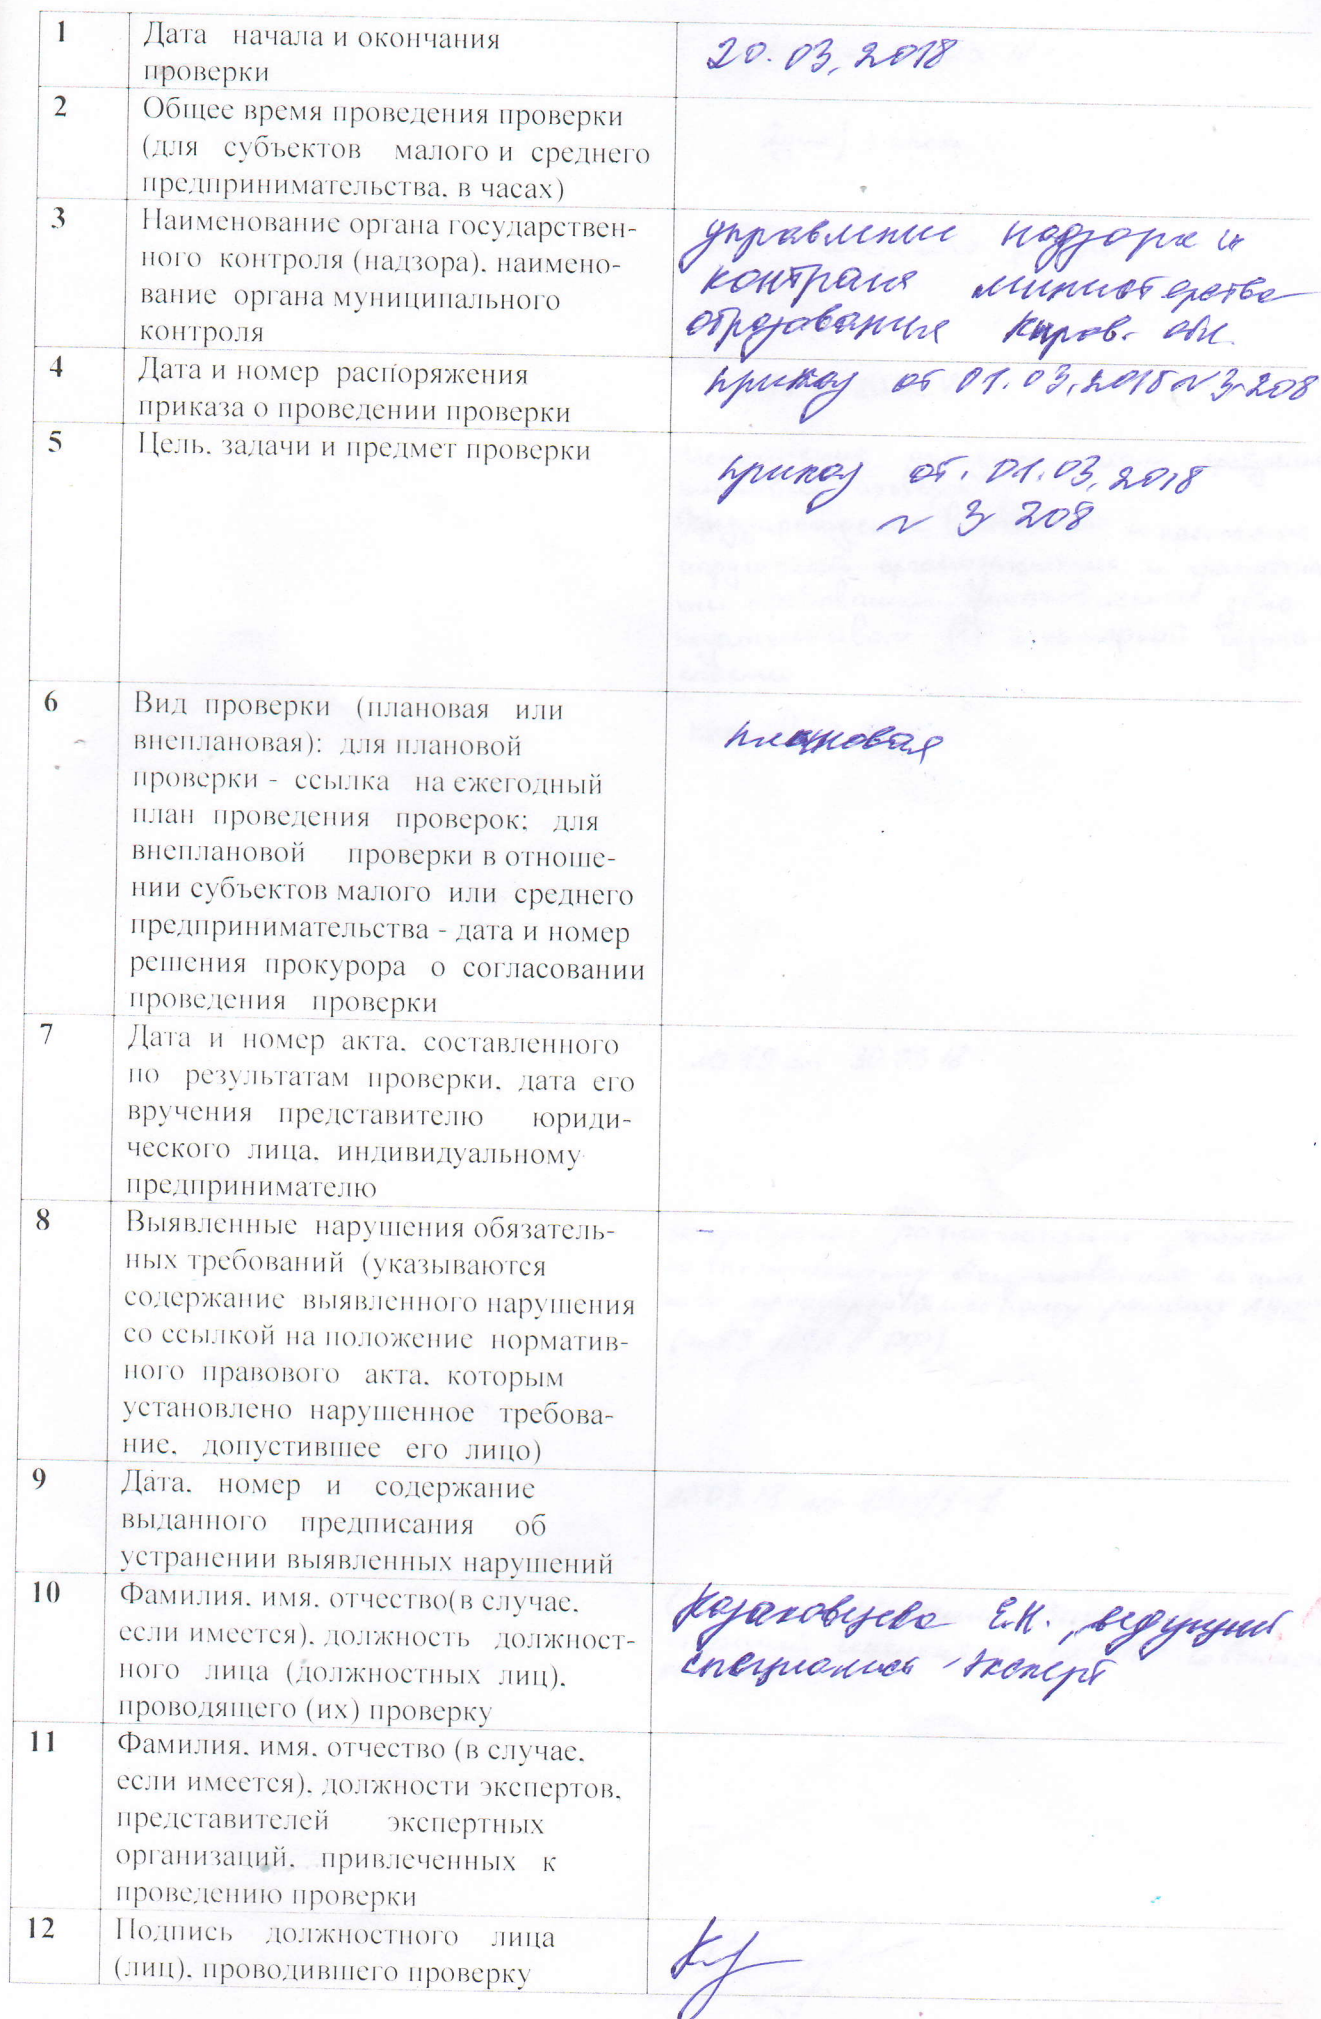 1 Дата начала и окончания
проверки
20.03.2018
2 Общее время проведения проверки
(для субъектов малого и среднего
предпринимательства, в часах)
3 Наименование органа государствен-
ного контроля (надзора), наимено-
вание органа муниципального
контроля
управление надзора и
контроля министерства
образования Киров. обл.
4 Дата и номер распоряжения
приказа о проведении проверки
приказ от 01.03.2018 № 3-208
5 Цель, задачи и предмет проверки
приказ от. 01.03.2018
№ 3-208
6 Вид проверки (плановая или
внеплановая): для плановой
проверки - ссылка на ежегодный
план проведения проверок; для
внеплановой проверки в отноше-
нии субъектов малого или среднего
предпринимательства - дата и номер
решения прокурора о согласовании
проведения проверки
плановая
7 Дата и номер акта, составленного
по результатам проверки, дата его
вручения представителю юриди-
ческого лица, индивидуальному
предпринимателю
8 Выявленные нарушения обязатель-
ных требований (указываются
содержание выявленного нарушения
со ссылкой на положение норматив-
ного правового акта, которым
установлено нарушенное требова-
ние, допустившее его лицо)
–
9 Дата, номер и содержание
выданного предписания об
устранении выявленных нарушений
10 Фамилия, имя, отчество(в случае,
если имеется), должность должност-
ного лица (должностных лиц),
проводящего (их) проверку
Казаковцева Е.Н., ведущий
специалист-эксперт
11 Фамилия, имя, отчество (в случае,
если имеется), должности экспертов,
представителей экспертных
организаций, привлеченных к
проведению проверки
12 Подпись должностного лица
(лиц), проводившего проверку